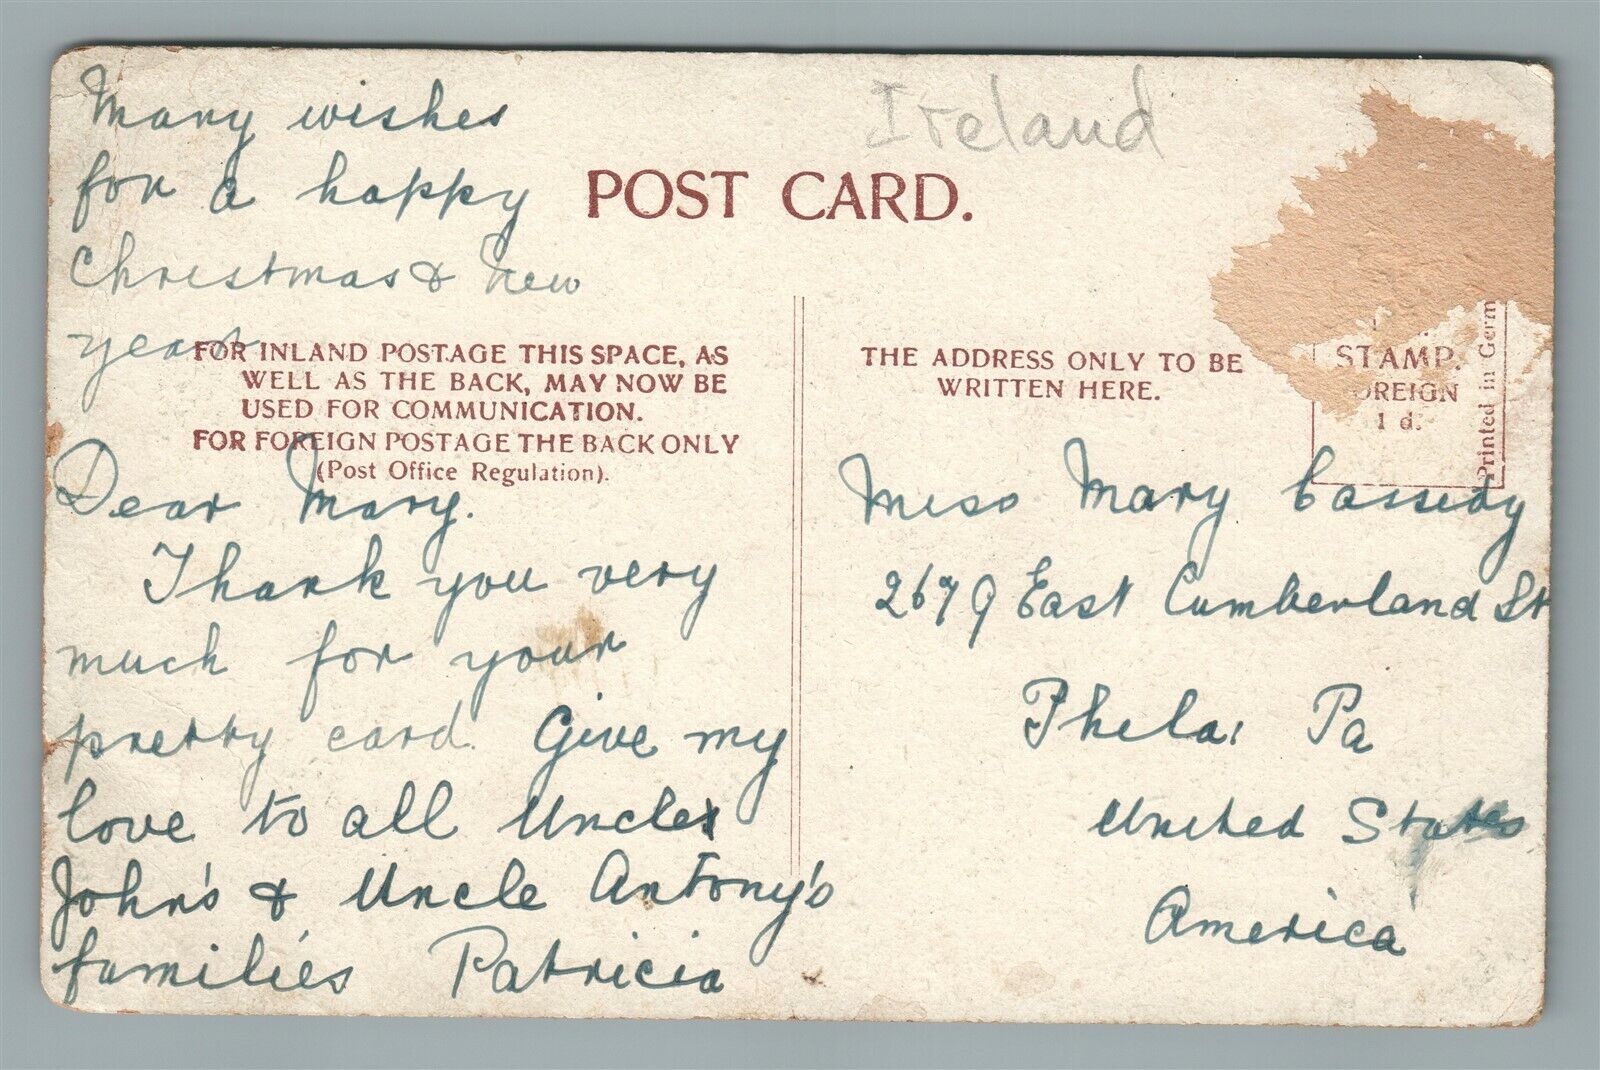 Many wishes
for a happy
Christmas & New
year
Ireland
POST CARD.
FOR INLAND POSTAGE THIS SPACE, AS
WELL AS THE BACK, MAY NOW BE
USED FOR COMMUNICATION.
FOR FOREIGN POSTAGE THE BACK ONLY
(Post Office Regulation).
Dear Mary.
Thank you very
much for your
pretty card. Give my
love to all Uncles
John's & Uncle Antony's
families Patricia
THE ADDRESS ONLY TO BE
WRITTEN HERE.
STAMP.
OREIGN
1 d.
Printed in Germ
Miss Mary Cassidy
2679 East Cumberland St
Phela: Pa
United States
America